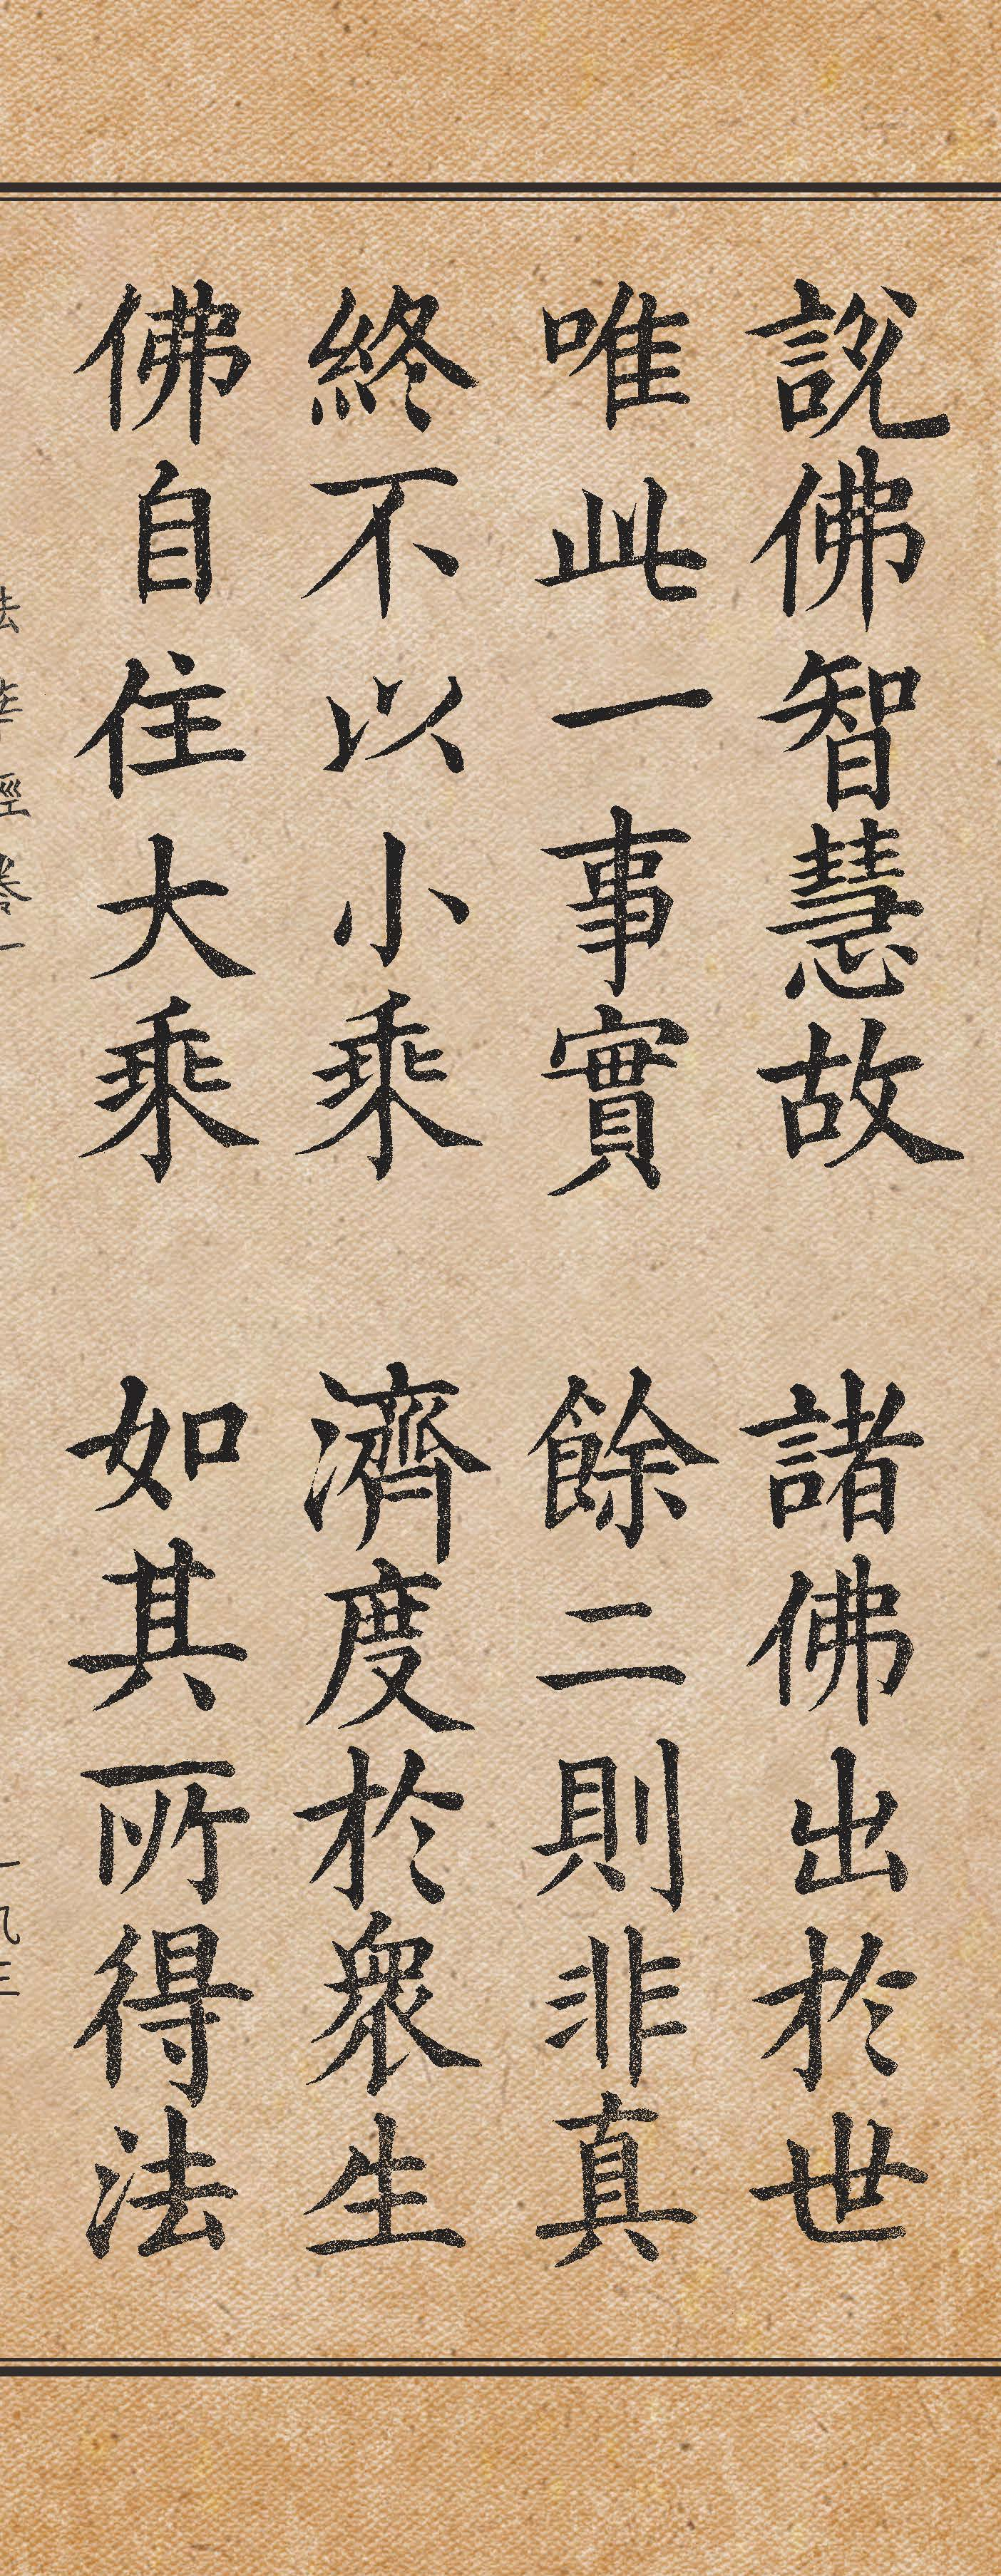 說佛智慧故 諸佛出於世
唯此一事實 餘二則非真
終不以小乘 濟度於眾生
佛自住大乘 如其所得法
法華經卷一 一九三